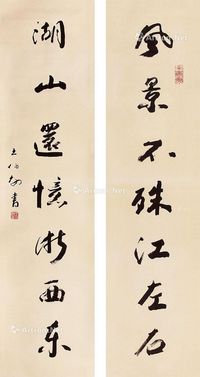 風景不殊江左右
湖山還憶浙西東
王伯敏書